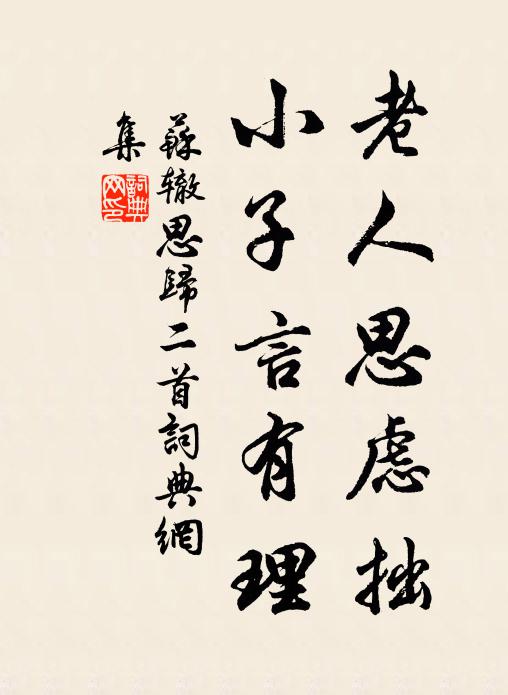 老人思慮拙
小子言有理
蘇辙思歸二首詞典網
集
詞典
网印